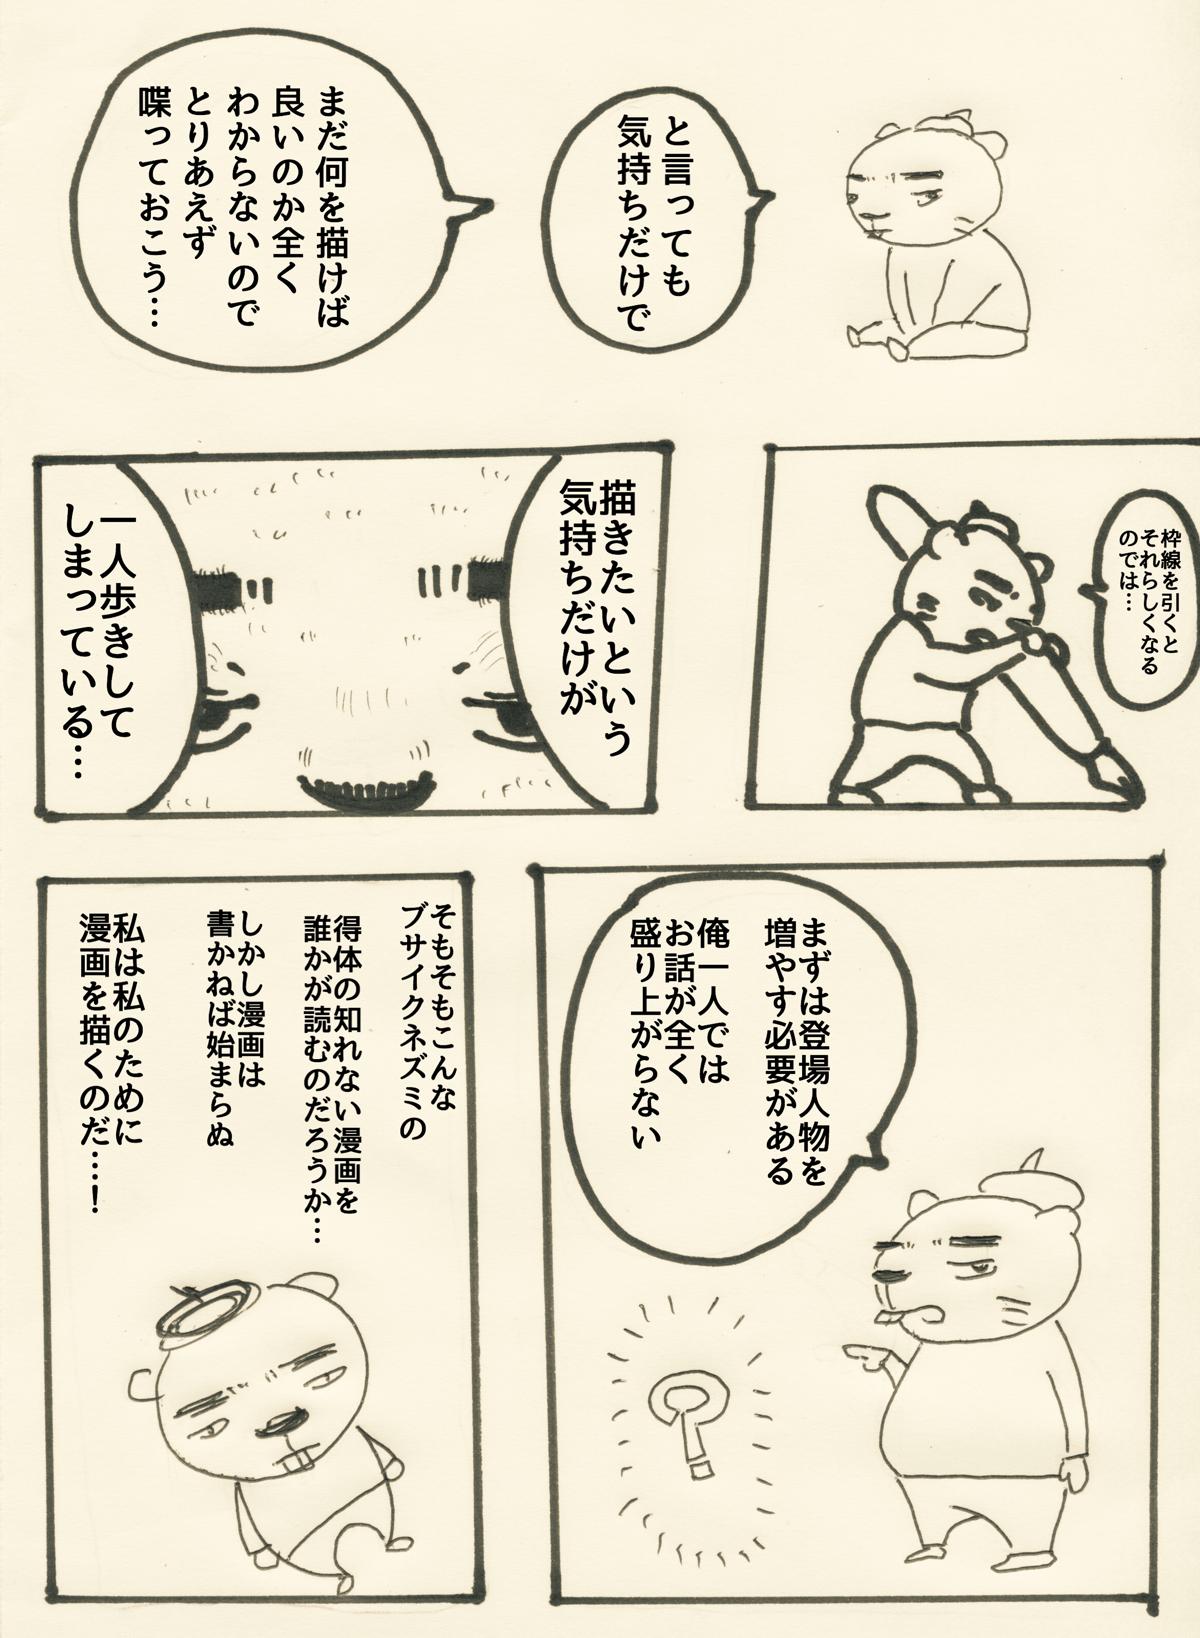 と言っても
気持ちだけで
まだ何を描けば
良いのか全く
わからないので
とりあえず
喋っておこう…
枠線を引くと
それらしくなる
のでは…
描きたいという
気持ちだけが
一人歩きして
しまっている…
まずは登場人物を
増やす必要がある
俺一人では
お話が全く
盛り上がらない
そもそもこんな
ブサイクネズミの
得体の知れない漫画を
誰かが読むのだろうか…
しかし漫画は
書かねば始まらぬ
私は私のために
漫画を描くのだ…!